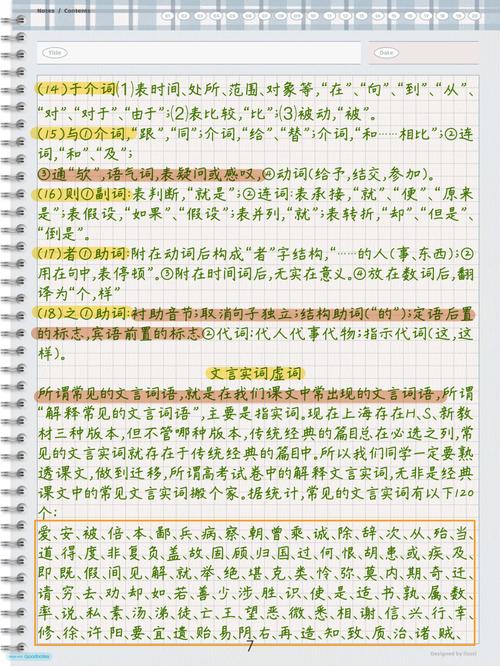 Notes / Contents
Title
Date
(14)于介词(1)表时间、处所、范围、对象等,“在”、“向”、“到”、“从”、
“对”、“对于”、“由于”;(2)表比较,“比”;(3)被动,“被”。
(15)与①介词,“跟”,“同”;介词,“给”、“替”;介词,“和……相比”;②连
词,“和”、“及”;
③通“欤”,语气词,表疑问或感叹,④动词(给予,结交,参加)。
(16)则①副词:表判断,“就是”;②连词:表承接,“就”、“便”、“原来
是”;表假设,“如果”、“假设”;表并列,“就”;表转折,“却”、“但是”、
“倒是”。
(17)者①助词:附在动词后构成“者”字结构,“……的人(事、东西);②
用在句中,表停顿”。③附在时间词后,无实在意义。④放在数词后,翻
译为“个,样”
(18)之①助词:衬助音节;取消句子独立;结构助词(“的”);定语后置
的标志,宾语前置的标志②代词:代人代事代物;指示代词(这,这
样)。
文言实词虚词
所谓常见的文言词语,就是在我们课文中常出现的文言词语,所谓
“解释常见的文言词语”,主要是指实词。现在上海存在H、S、新教
材三种版本,但不管哪种版本,传统经典的篇目总在必选之列,常
见的文言实词就存在于传统经典的篇目中。所以我们同学一定要熟
透课文,做到迁移,所谓高考试卷中的解释文言实词,无非是经典
课文中的常见文言实词搬个家。据统计,常见的文言实词有以下120
个:
爱、安、被、倍、本、鄙、兵、病、察、朝、曾、乘、诚、除、辞、次、从、殆、当、
道、得、度、非、复、负、盖、故、固、顾、归、国、过、何、恨、胡、患、或、疾、及、
即、既、假、间、见、解、就、举、绝、堪、克、类、怜、弥、莫、内、期、奇、迁、
请、穷、去、劝、却、如、若、善、少、涉、胜、识、使、是、适、书、孰、属、数、
率、说、私、素、汤、涕、徒、亡、王、望、恶、微、悉、相、谢、信、兴、行、幸、
修、徐、许、阳、要、宜、遗、贻、易、阴、右、再、造、知、致、质、治、诸、贼、
7